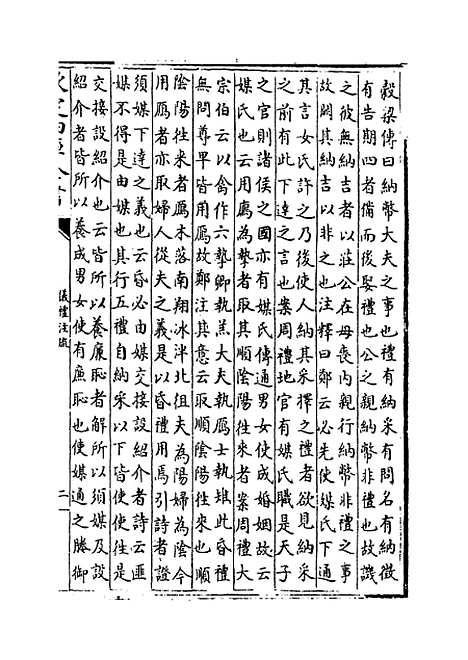 穀梁傳曰納幣大夫之事也禮有納采有問名有納徵
有告期四者備而後娶禮也公之親納幣非禮也故譏
之彼無納吉者以莊公在母喪内親行納幣非禮之事
故闕其納吉以非之也注釋曰鄭云必先使媒氏下通
其言女氏許之乃後使人納其采擇之禮者欲見納采
之前有此下達之言也案周禮地官有媒氏職是天子
之官則諸侯之國亦有媒氏傳通男女使成婚姻故云
媒氏也云用鴈為摯者取其順陰陽徃來者案周禮大
宗伯云以禽作六摯卿執羔大夫執鴈士執雉此昏禮
無問尊卑皆用鴈故鄭注其意云取順陰陽徃來也順
陰陽徃來者鴈木落南翔冰泮北徂夫為陽婦為陰今
用鴈者亦取婦人從夫之義是以昏禮用焉引詩者證
須媒下達之義也云昏必由媒交接設紹介者詩云匪
媒不得是由媒也其行五禮自納采以下皆使使徃是
交接設紹介也云皆所以養廉恥者解所以須媒及設
紹介者皆所以養成男女使有廉恥也使媒通之媵御
儀禮注疏
二